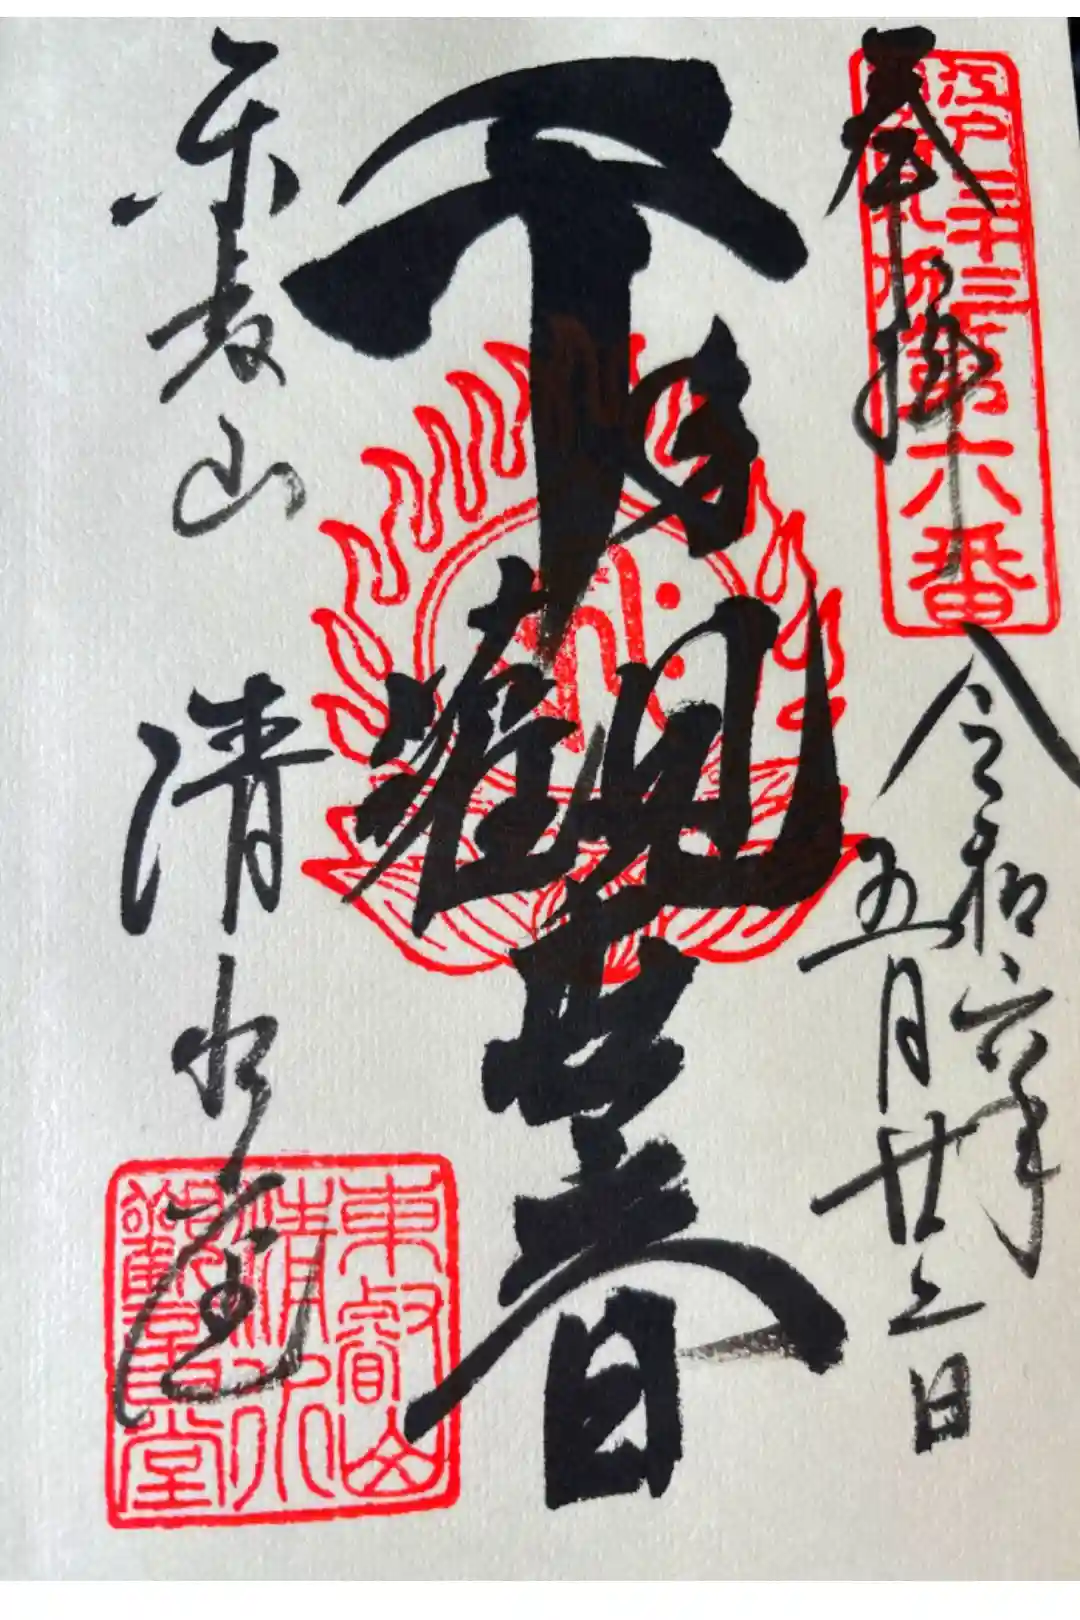 奉拝
江戸三十三
観音札所
第六番
令和六年
五月廿 日
千手觀世音
東叡山 清水堂
東叡山
清水
觀音堂